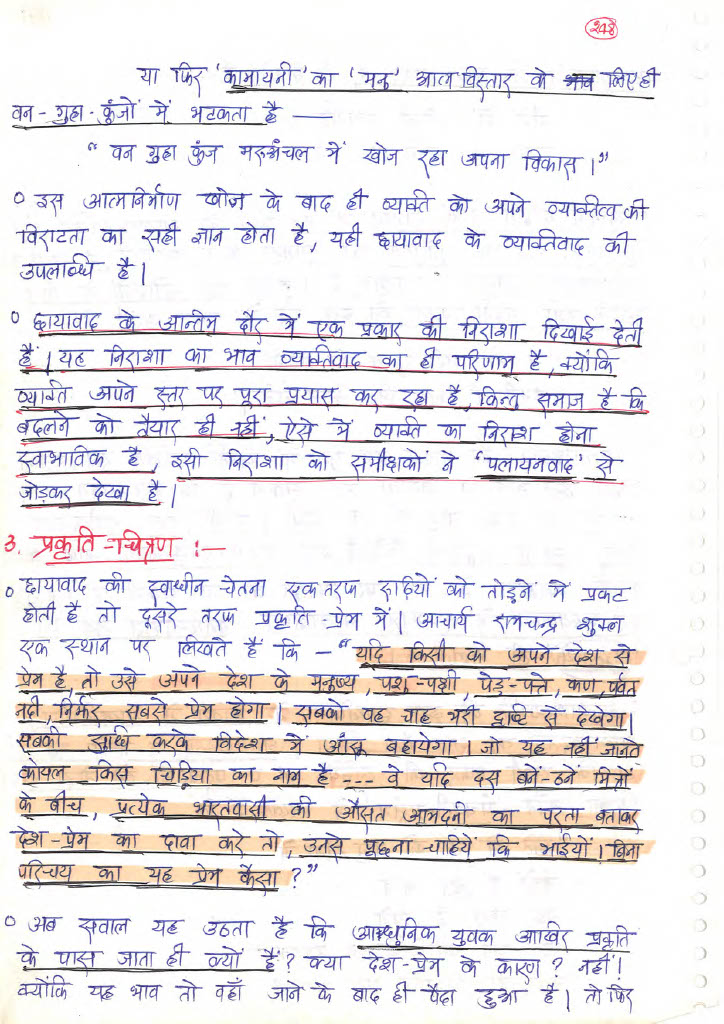 248
या फिर 'कामायनी' का 'मनु' आत्म विस्तार के लिए ही
वन-गुहा-कुंजों में भटकता है —
"वन गुहा कुंज मरुअंचल में खोज रहा अपना विकास।"
० इस आत्मनिर्माण खोज के बाद ही व्यक्ति को अपने व्यक्तित्व की
विराटता का सही ज्ञान होता है, यही छायावाद के व्यक्तिवाद की
उपलब्धि है।
० छायावाद के अन्तिम दौर में एक प्रकार की निराशा दिखाई देती
है। यह निराशा का भाव व्यक्तिवाद का ही परिणाम है, क्योंकि
व्यक्ति अपने स्तर पर पूरा प्रयास कर रहा है, किन्तु समाज है कि
बदलने को तैयार ही नहीं, ऐसे में व्यक्ति का निराश होना
स्वाभाविक है, इसी निराशा को समीक्षकों ने 'पलायनवाद' से
जोड़कर देखा है।
3. प्रकृति-चित्रण :—
० छायावाद की स्वाधीन चेतना एक तरफ रूढ़ियों को तोड़ने में प्रकट
होती है तो दूसरे तरफ प्रकृति-प्रेम में। आचार्य रामचन्द्र शुक्ल
एक स्थान पर लिखते हैं कि — "यदि किसी को अपने देश से
प्रेम है, तो उसे अपने देश के मनुष्य, पशु-पक्षी, पेड़-पत्ते, कण, पर्वत
नदी, निर्झर सबसे प्रेम होगा। सबको वह चाह भरी दृष्टि से देखेगा।
सबकी सुधि करके विदेश में आँसू बहायेगा। जो यह नहीं जानते
कोयल किस चिड़िया का नाम है ---- वे यदि दस बनें-ठनें मित्रों
के बीच, प्रत्येक भारतवासी की औसत आमदनी का परता बताकर
देश-प्रेम का दावा करे तो, उनसे पूछना चाहिये कि भाईयों। बिना
परिचय का यह प्रेम कैसा?"
० अब सवाल यह उठता है कि आधुनिक युवक आखिर प्रकृति
के पास जाता ही क्यों है? क्या देश-प्रेम के कारण? नहीं!
क्योंकि यह भाव तो वहाँ जाने के बाद ही पैदा हुआ है। तो फिर